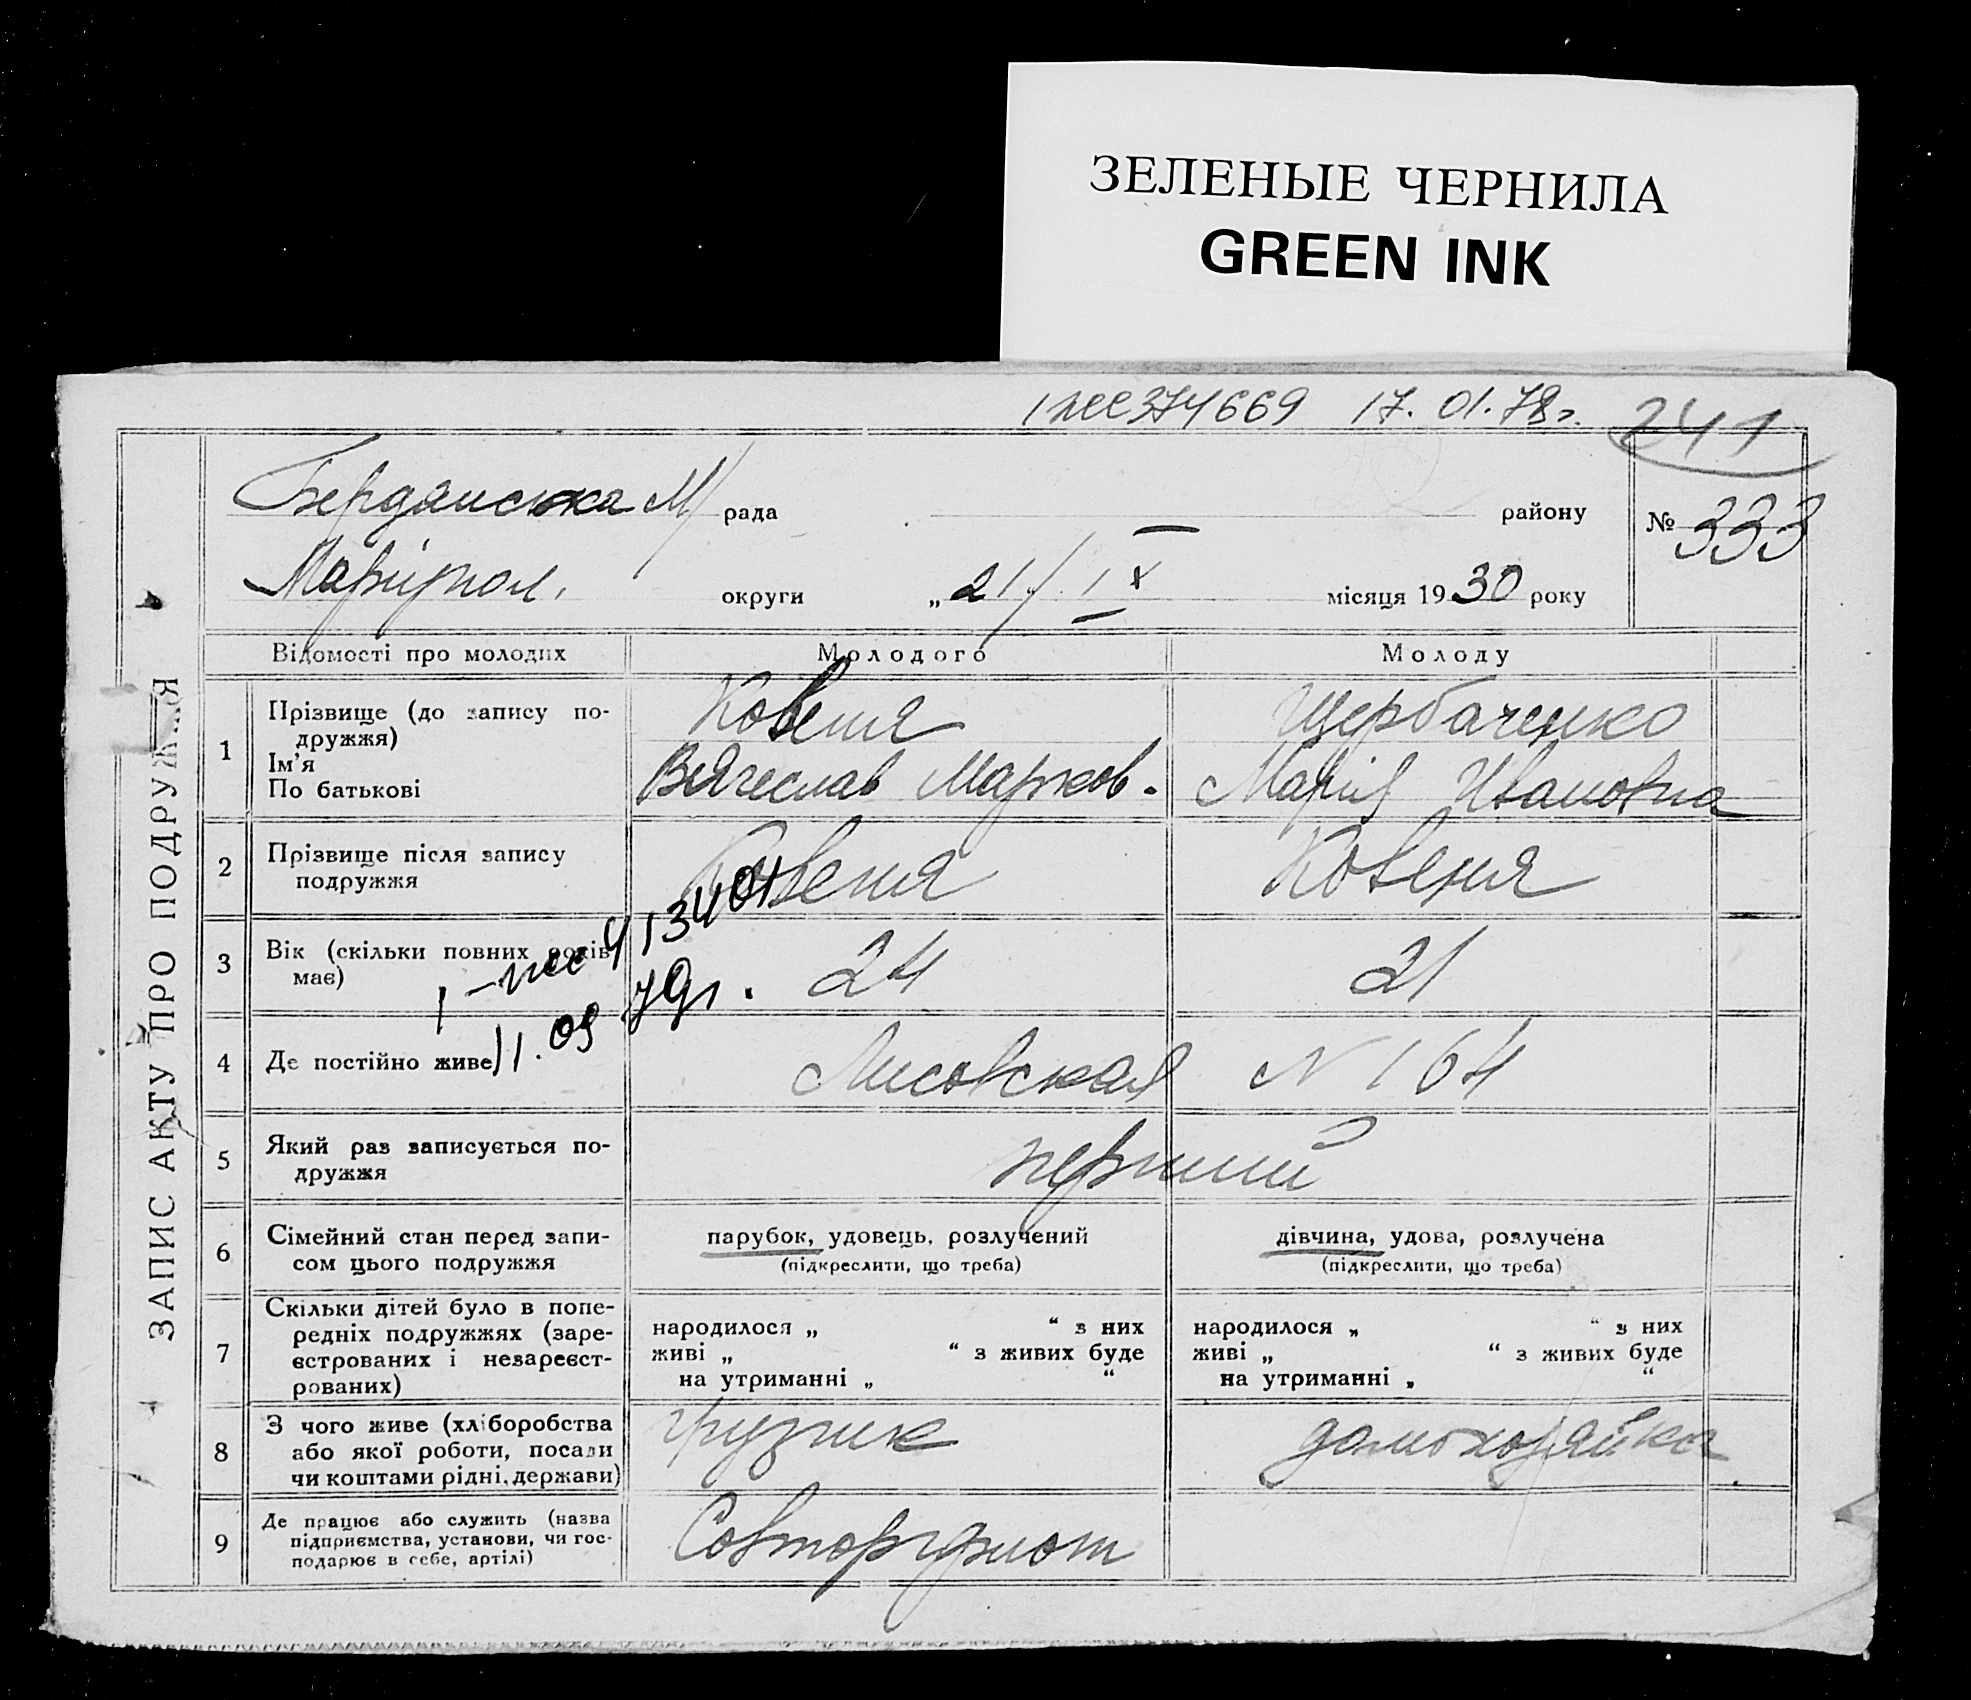 ЗЕЛЕНЫЕ ЧЕРНИЛА
GREEN INK
17. 01. 78г.
241
Бердянська М/ рада району
№ 333
Маріупол. округи „21/ IX місяця 1930 року
ЗАПИС АКТУ ПРО ПОДРУЖЖЯ
Відомості про молодих Молодого Молоду
1 Прізвище (до запису по-
дружжя)
Ім’я
По батькові
Ковеня
Вячеслав Марков.
Щербаченко
Марія Ивановна
2 Прізвище після запису
подружжя
Ковеня Ковеня
3 Вік (скільки повних років
має)
24 21
11. 09 79г.
4 Де постійно живе
Лисовская N 164
5 Який раз записується по-
дружжя
перший
6 Сімейний стан перед запи-
сом цього подружжя
парубок, удовець, розлучений
(підкреслити, що треба)
дівчина, удова, розлучена
(підкреслити, що треба)
7 Скільки дітей було в попе-
редніх подружжях (заре-
єстрованих і незареєст-
рованих)
народилося „ “ з них
живі „ “ з живих буде
на утриманні „ “
народилося „ “ з них
живі „ “ з живих буде
на утриманні „ “
8 З чого живе (хліборобства
або якої роботи, посади
чи коштами рідні, держави)
грузчик домохозяйка
9 Де працює або служить (назва
підприємства, установи, чи гос-
подарює в себе, артілі)
Совторгфлот